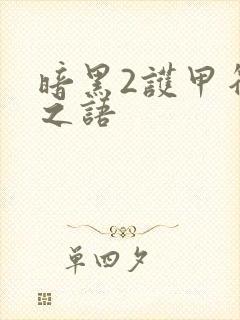 暗黑2護甲符
之語
單四夕